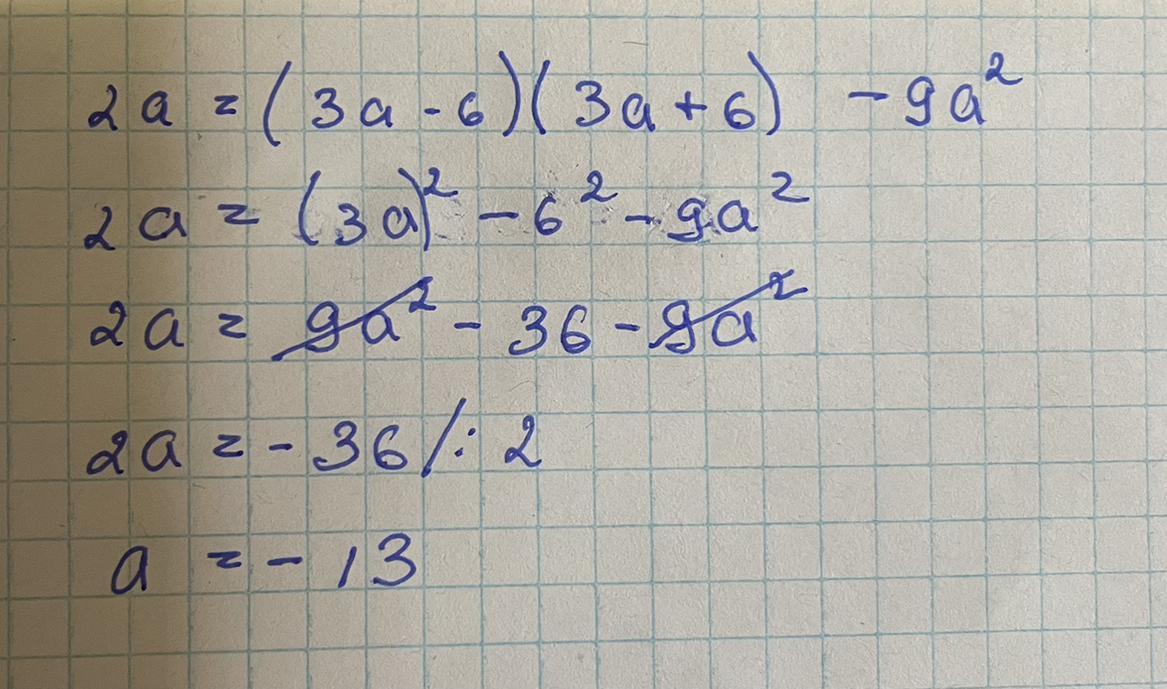 2a = (3a - 6)(3a + 6) - 9a²
2a = (3a)² - 6² - 9a²
2a = 9a² - 36 - 9a²
2a = - 36 /: 2
a = - 13